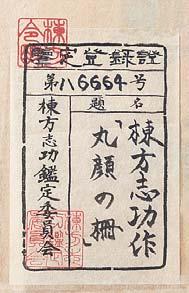 鑑定登録證
第八6664号
題名
棟方志功作
「丸顔の柵」
棟方志功鑑定委員会